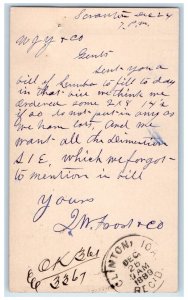 Scranton Dec 24
7 P.M.
W J Y & Co
Gents
Sent you a
bill of Lumber to fill to day
in that bill we think we
ordered some 2x8 14's
if so do not put in any as
we have lost, and we
want all the Dimention
S1E, which we forgot
to mention in bill
Yours
J.W. Food & Co
OK 3361
3367
CLINTON, IOWA
DEC
25
5 AM
1899
REC'D.